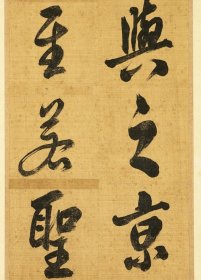 與之京
至若聖